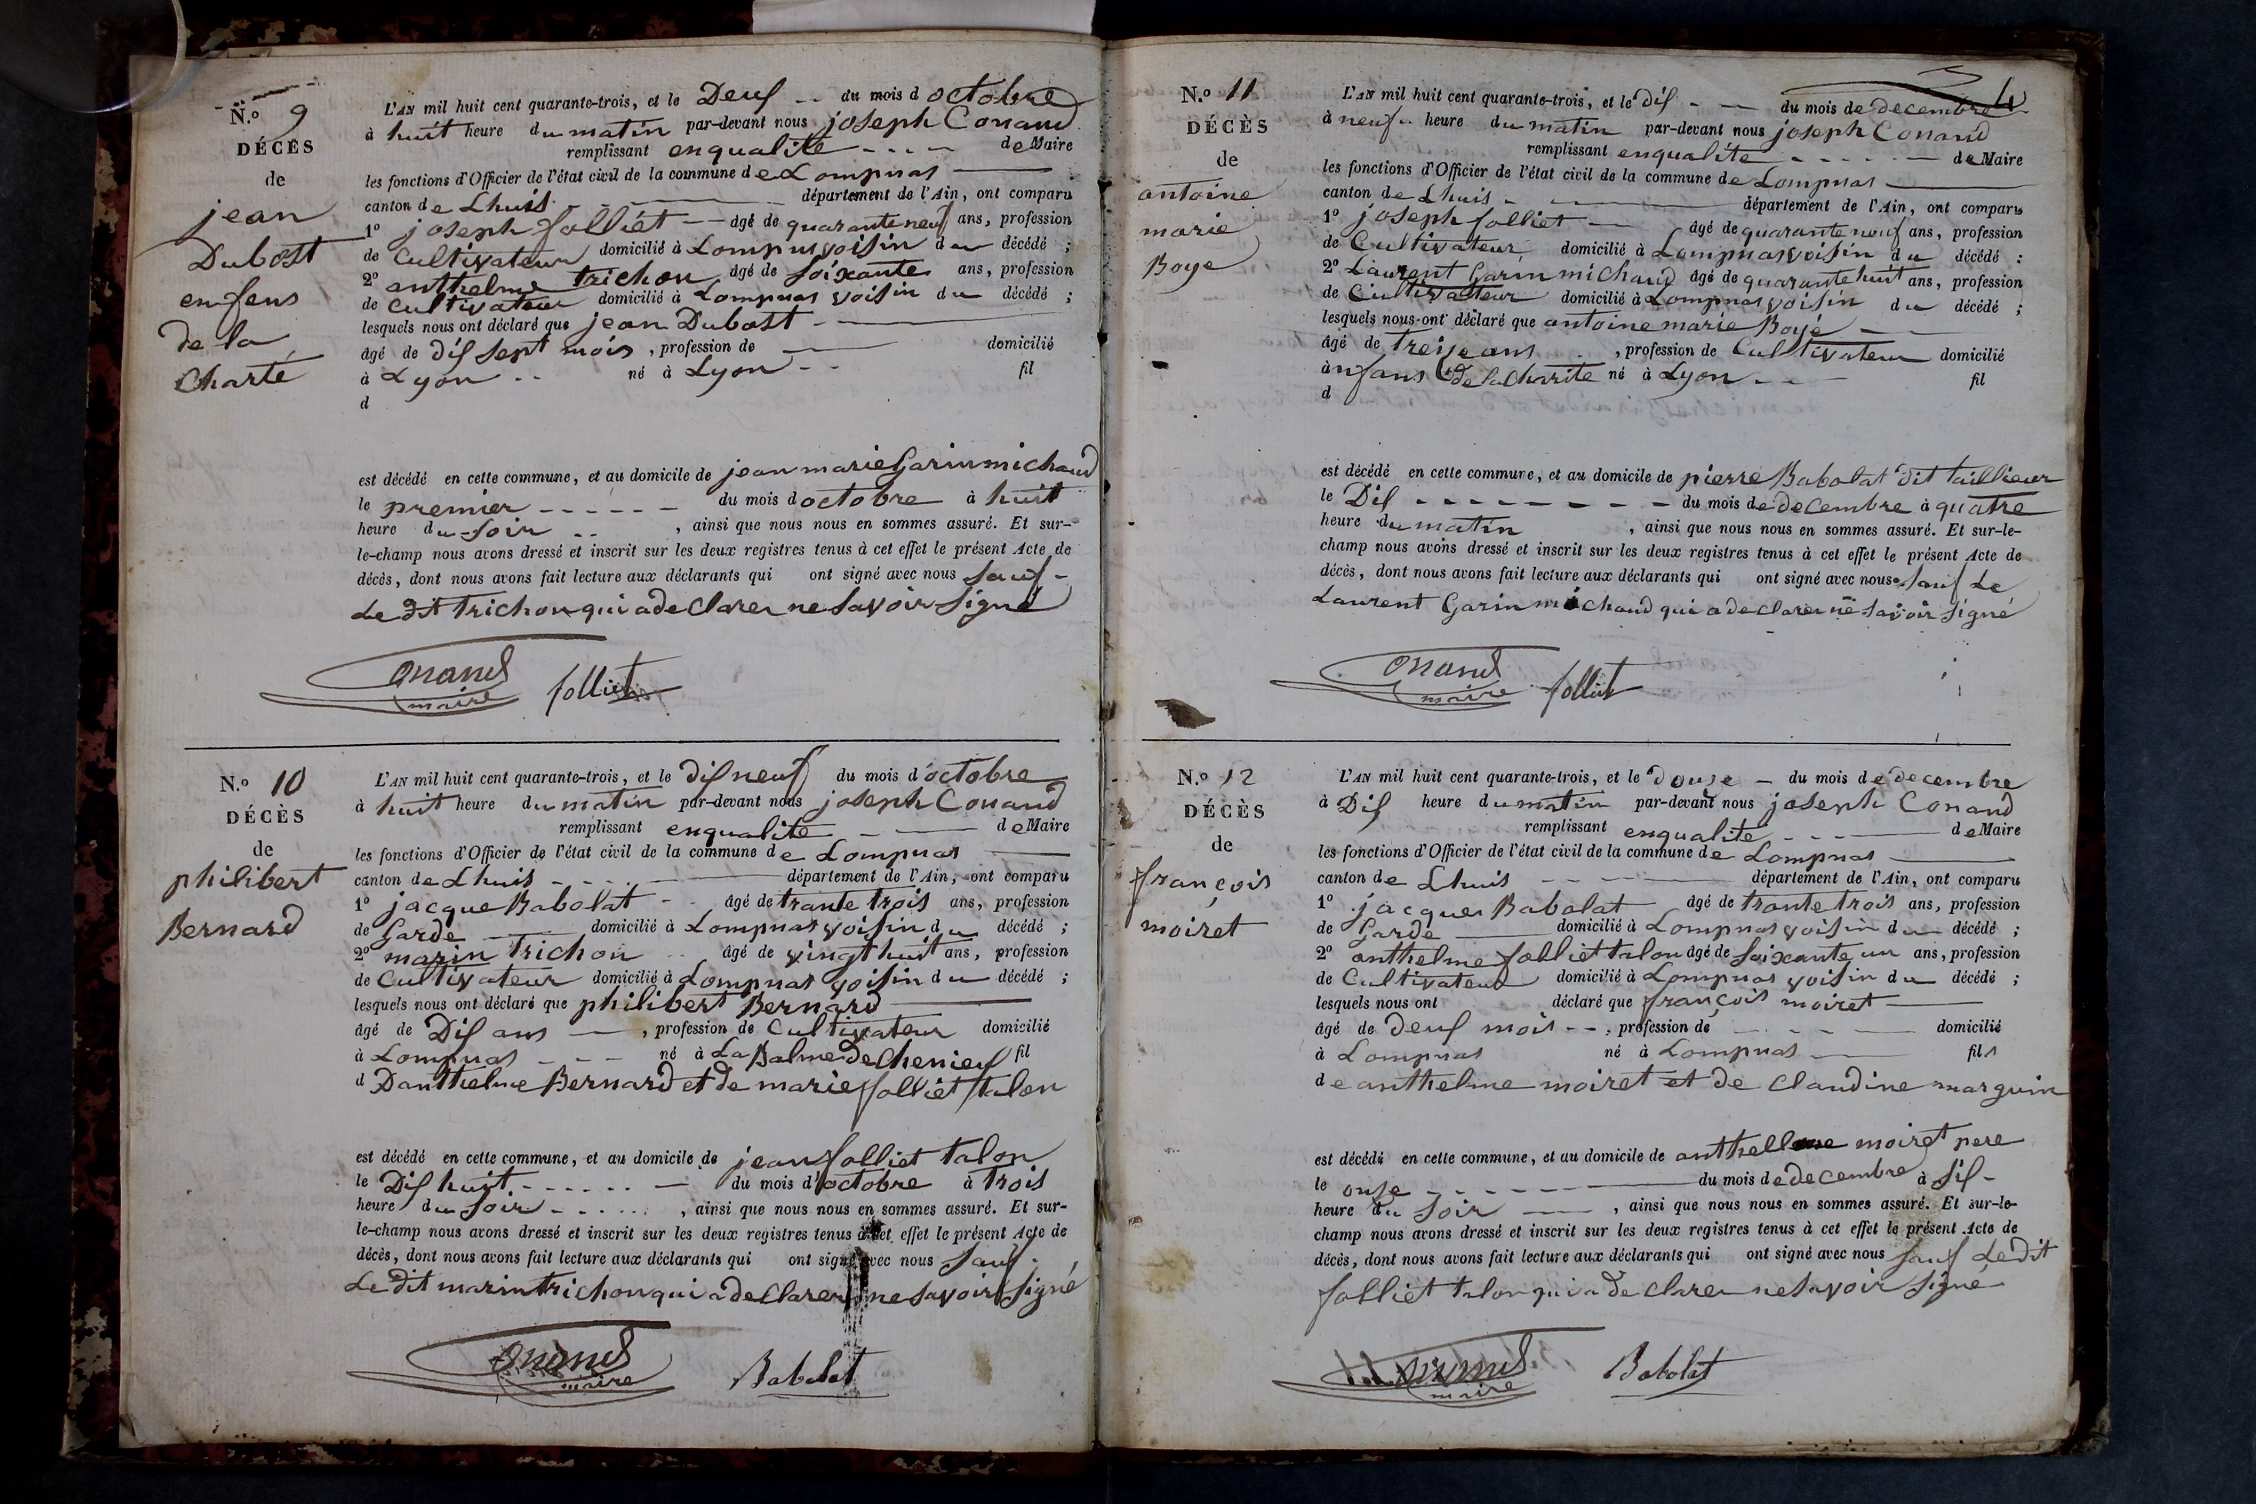 N.º 9
DÉCÈS
de
jean
Dubost
enfens
de la
Charté
L'AN mil huit cent quarante-trois, et le Deux du mois d octobre
à huit heure du matin par-devant nous joseph Conand
remplissant enqualité de Maire
les fonctions d'Officier de l'état civil de la commune de Lompnas
canton de Lhuis département de l'Ain, ont comparu
1º joseph folliét âgé de quarante neuf ans, profession
de Cultivateur domicilié à Lompnas voisin du décédé ;
2º anthelme trichon âgé de soixante ans, profession
de Cultivateur domicilié à Lompnas voisin du décédé ;
lesquels nous ont déclaré que jean Dubost
âgé de dix sept mois, profession de domicilié
à Lyon né à Lyon fil
d
est décédé en cette commune, et au domicile de jean marie Garin michaud
le premier du mois d octobre à huit
heure du soir, ainsi que nous nous en sommes assuré. Et sur-
le-champ nous avons dressé et inscrit sur les deux registres tenus à cet effet le présent Acte de
décès, dont nous avons fait lecture aux déclarants qui ont signé avec nous sauf
Le dit trichon qui a declarer ne savoir signé
Conand maire folliet
N.º 10
DÉCÈS
de
philibert
Bernard
L'AN mil huit cent quarante-trois, et le dix neuf du mois d'octobre
à huit heure du matin par-devant nous joseph Conand
remplissant enqualite de Maire
les fonctions d'Officier de l'état civil de la commune de Lompnas
canton de Lhuis département de l'Ain, ont comparu
1º jacque Babolat âgé de trante trois ans, profession
de Garde domicilié à Lompnas voisin du décédé ;
2º marin trichon âgé de vingt huit ans, profession
de Cultivateur domicilié à Lompnas voisin du décédé ;
lesquels nous ont déclaré que philibert Bernard
âgé de Dix ans, profession de Cultivateur domicilié
à Lompnas né à La Balme de Chenieux fil
d Danthelme Bernard et de marie folliet talon
est décédé en cette commune, et au domicile de jean folliet talon
le Dix huit du mois d'octobre à trois
heure du soir, ainsi que nous nous en sommes assuré. Et sur-
le-champ nous avons dressé et inscrit sur les deux registres tenus à cet effet le présent Acte de
décès, dont nous avons fait lecture aux déclarants qui ont signé avec nous sauf
Le dit marin trichon qui a declarer ne savoir signé
Conand maire Babolat
4
N.º 11
DÉCÈS
de
antoine
marie
Boye
L'AN mil huit cent quarante-trois, et le dix du mois de decembre
à neuf heure du matin par-devant nous joseph Conand
remplissant enqualité de Maire
les fonctions d'Officier de l'état civil de la commune de Lompnas
canton de Lhuis département de l'Ain, ont comparu
1º joseph folliet âgé de quarante neuf ans, profession
de Cultivateur domicilié à Lompnas voisin du décédé ;
2º Laurent Garin michaud âgé de quarante huit ans, profession
de Cultivateur domicilié à Lompnas voisin du décédé ;
lesquels nous ont déclaré que antoine marie Boyé
âgé de treize ans, profession de Cultivateur domicilié
à nfans de la Charite né à Lyon fil
d
est décédé en cette commune, et au domicile de pierre Babolat dit taillieur
le Dix du mois de decembre à quatre
heure du matin, ainsi que nous nous en sommes assuré. Et sur-le-
champ nous avons dressé et inscrit sur les deux registres tenus à cet effet le présent Acte de
décès, dont nous avons fait lecture aux déclarants qui ont signé avec nous sauf Le
Laurent Garin michaud qui a declarer ne savoir signé
Conand maire folliet
N.º 12
DÉCÈS
de
françois
moiret
L'AN mil huit cent quarante-trois, et le douze du mois de decembre
à Dix heure du matin par-devant nous joseph Conand
remplissant enqualité de Maire
les fonctions d'Officier de l'état civil de la commune de Lompnas
canton de Lhuis département de l'Ain, ont comparu
1º jacques Babolat âgé de trante trois ans, profession
de Garde domicilié à Lompnas voisin du décédé ;
2º anthelme folliet talon âgé de soixante un ans, profession
de Cultivateur domicilié à Lompnas voisin du décédé ;
lesquels nous ont déclaré que françois moiret
âgé de deux mois, profession de domicilié
à Lompnas né à Lompnas fils
de anthelme moiret et de Claudine marguin
est décédé en cette commune, et au domicile de anthelme moiret pere
le onze du mois de decembre à six
heure du soir, ainsi que nous nous en sommes assuré. Et sur-le-
champ nous avons dressé et inscrit sur les deux registres tenus à cet effet le présent Acte de
décès, dont nous avons fait lecture aux déclarants qui ont signé avec nous sauf Le dit
folliet talon qui a declarer ne savoir signé
Conand maire Babolat